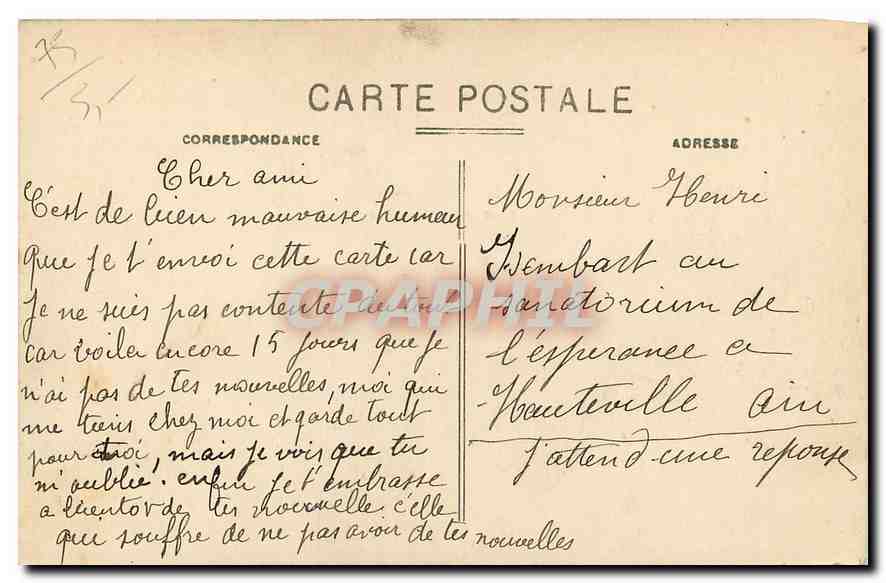 75
35
CARTE POSTALE
CORRESPONDANCE
ADRESSE
Cher ami
C'est de bien mauvaise humeur
que je t'envoi cette carte car
je ne suis pas contente du tout
car voila encore 15 jours que je
n'ai pas de tes nouvelles, moi qui
me tiens chez moi et garde tout
pour toi, mais je vois que tu
m'oublie. enfin je t'embrasse
a bientot de tes nouvelle c'elle
qui souffre de ne pas avoir de tes nouvelles
Monsieur Henri
Isembart au
sanatorium de
l'ésperance a
Hauteville Ain
j'attend une reponse
CPAPHIL